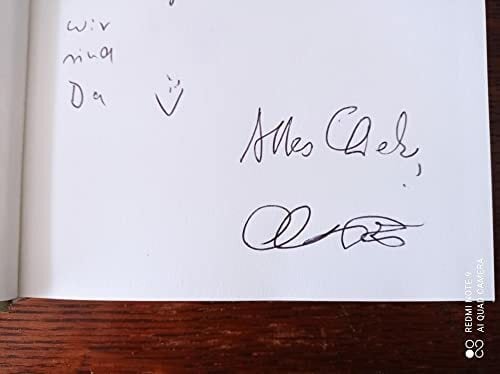 wir
sind
Da
Alles
REDMI NOTE 9
AI QUAD CAMERA